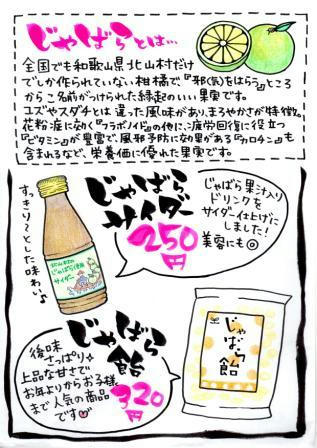 じゃばらとは…
全国でも和歌山県北山村だけ
でしか作られていない柑橘で、『邪気をはらう』ところ
からこ名前がつけられた縁起のいい果実です。
ユズやスダチとは違った風味があり、まろやさが特徴。
花粉症に効く『フラボノイド』の他に、疲労回復に役立つ
『ビタミン』が豊富で、風邪予防に効果がある『カロチン』も
含まれるなど、栄養価に優れた果実です。
じゃばら
サイダー
250円
じゃばら果汁入り
ドリンクを
サイダー仕上げに
しました!
美容にも◎
すっきり〜とした味わい♪
じゃばら
サイダー
じゃばら
飴
320円
後味
さっぱり
上品な甘さで
お年よりからお子様
まで人気の商品
です
じゃばら飴